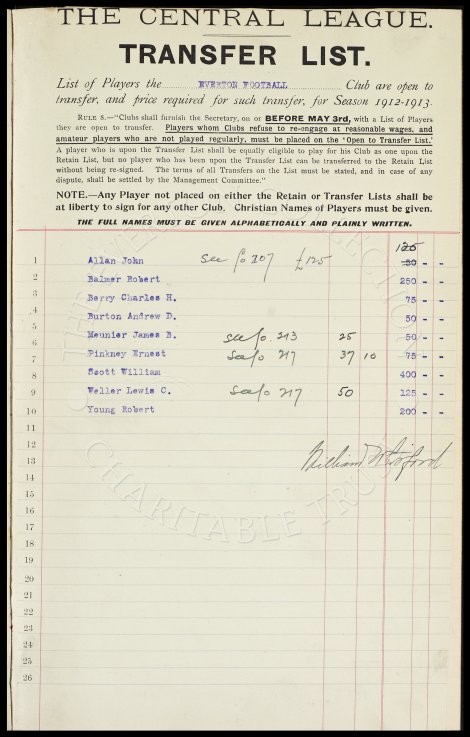 THE CENTRAL LEAGUE.
TRANSFER LIST.
List of Players the EVERTON FOOTBALL Club are open to
transfer, and price required for such transfer, for Season 1912-1913.
RULE 8.—"Clubs shall furnish the Secretary, on or BEFORE MAY 3rd, with a List of Players
they are open to transfer. Players whom Clubs refuse to re-engage at reasonable wages, and
amateur players who are not played regularly, must be placed on the 'Open to Transfer List.'
A player who is upon the Transfer List shall be equally eligible to play for his Club as one upon the
Retain List, but no player who has been upon the Transfer List can be transferred to the Retain List
without being re-signed. The terms of all Transfers on the List must be stated, and in case of any
dispute, shall be settled by the Management Committee."
NOTE.—Any Player not placed on either the Retain or Transfer Lists shall be
at liberty to sign for any other Club. Christian Names of Players must be given.
THE FULL NAMES MUST BE GIVEN ALPHABETICALLY AND PLAINLY WRITTEN.
125
1 Allan John see fo 207 £125 50 - -
2 Balmer Robert 250 - -
3 Berry Charles H. 75 - -
4 Burton Andrew D. 50 - -
5 Meunier James B. see fo. 213 25 50 - -
6 Pinkney Ernest see fo 217 37 10 75 - -
7
8 Scott William 400 - -
9 Weller Lewis C. see fo 217 50 125 - -
10 Young Robert 200 - -
11
12
13
14
15
16
17
18
19
20
21
22
23
24
25
26
THE EVERTON COLLECTION
CHARITABLE TRUST